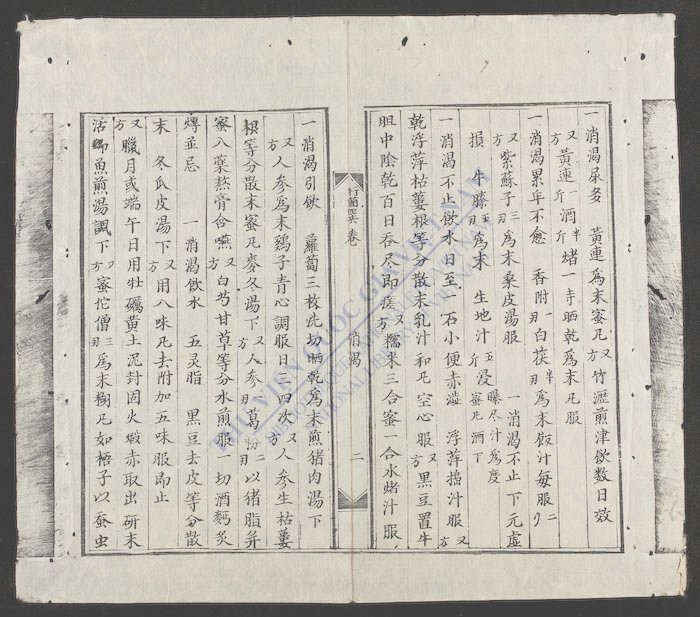 一消渴尿多 黃連為末蜜凡又方竹瀝煎津飲数日效
又方黃連一斤酒半斤煮一寺晒乾為末凡服
一消渴累年不愈 香附一白茯半為末飯汁每服二
又方紫蘇子三為末桑皮湯服 一消渴不止下元虛
損 牛膝五為末 生地汁五斤浸曝尽汁為度蜜凡酒下
一消渴不止飲水日至一石小便赤澁 浮萍搗汁服又方
乾浮萍枯蔞根等分散末乳汁和凡空心服又方黑豆置牛
胆中陰乾百日吞尽即瘥又方糯米三合蜜一合水煮汁服
消渴
二
一消渴引飲 蘿蔔三枚切晒乾為末煎猪肉湯下
又方人参為末鷄子青心調服日三四次又方人参生枯蔞
根等分散末蜜凡麥冬湯下又方人参葛粉二以猪脂并
蜜八藥熬膏含嚥又方白芍甘草等分水煎服一切酒麪炙
煿並忌 一消渴飲水 五灵脂 黑豆去皮等分散
末 冬瓜皮湯下又方用八味凡去附加五味服即止
又方臘月或端午日用牡礪黃土泥封固火煅赤取出研末
活鯽魚煎湯調下又方蜜佗僧三為末糊凡如梧子以蚕虫
THƯ VIỆN QUỐC GIA VIỆT NAM
NATIONAL LIBRARY OF VIETNAM